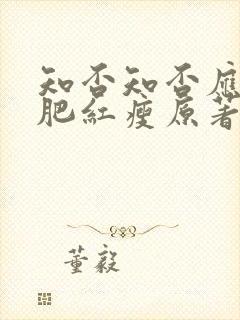 知否知否應
肥紅瘦原著
董毅